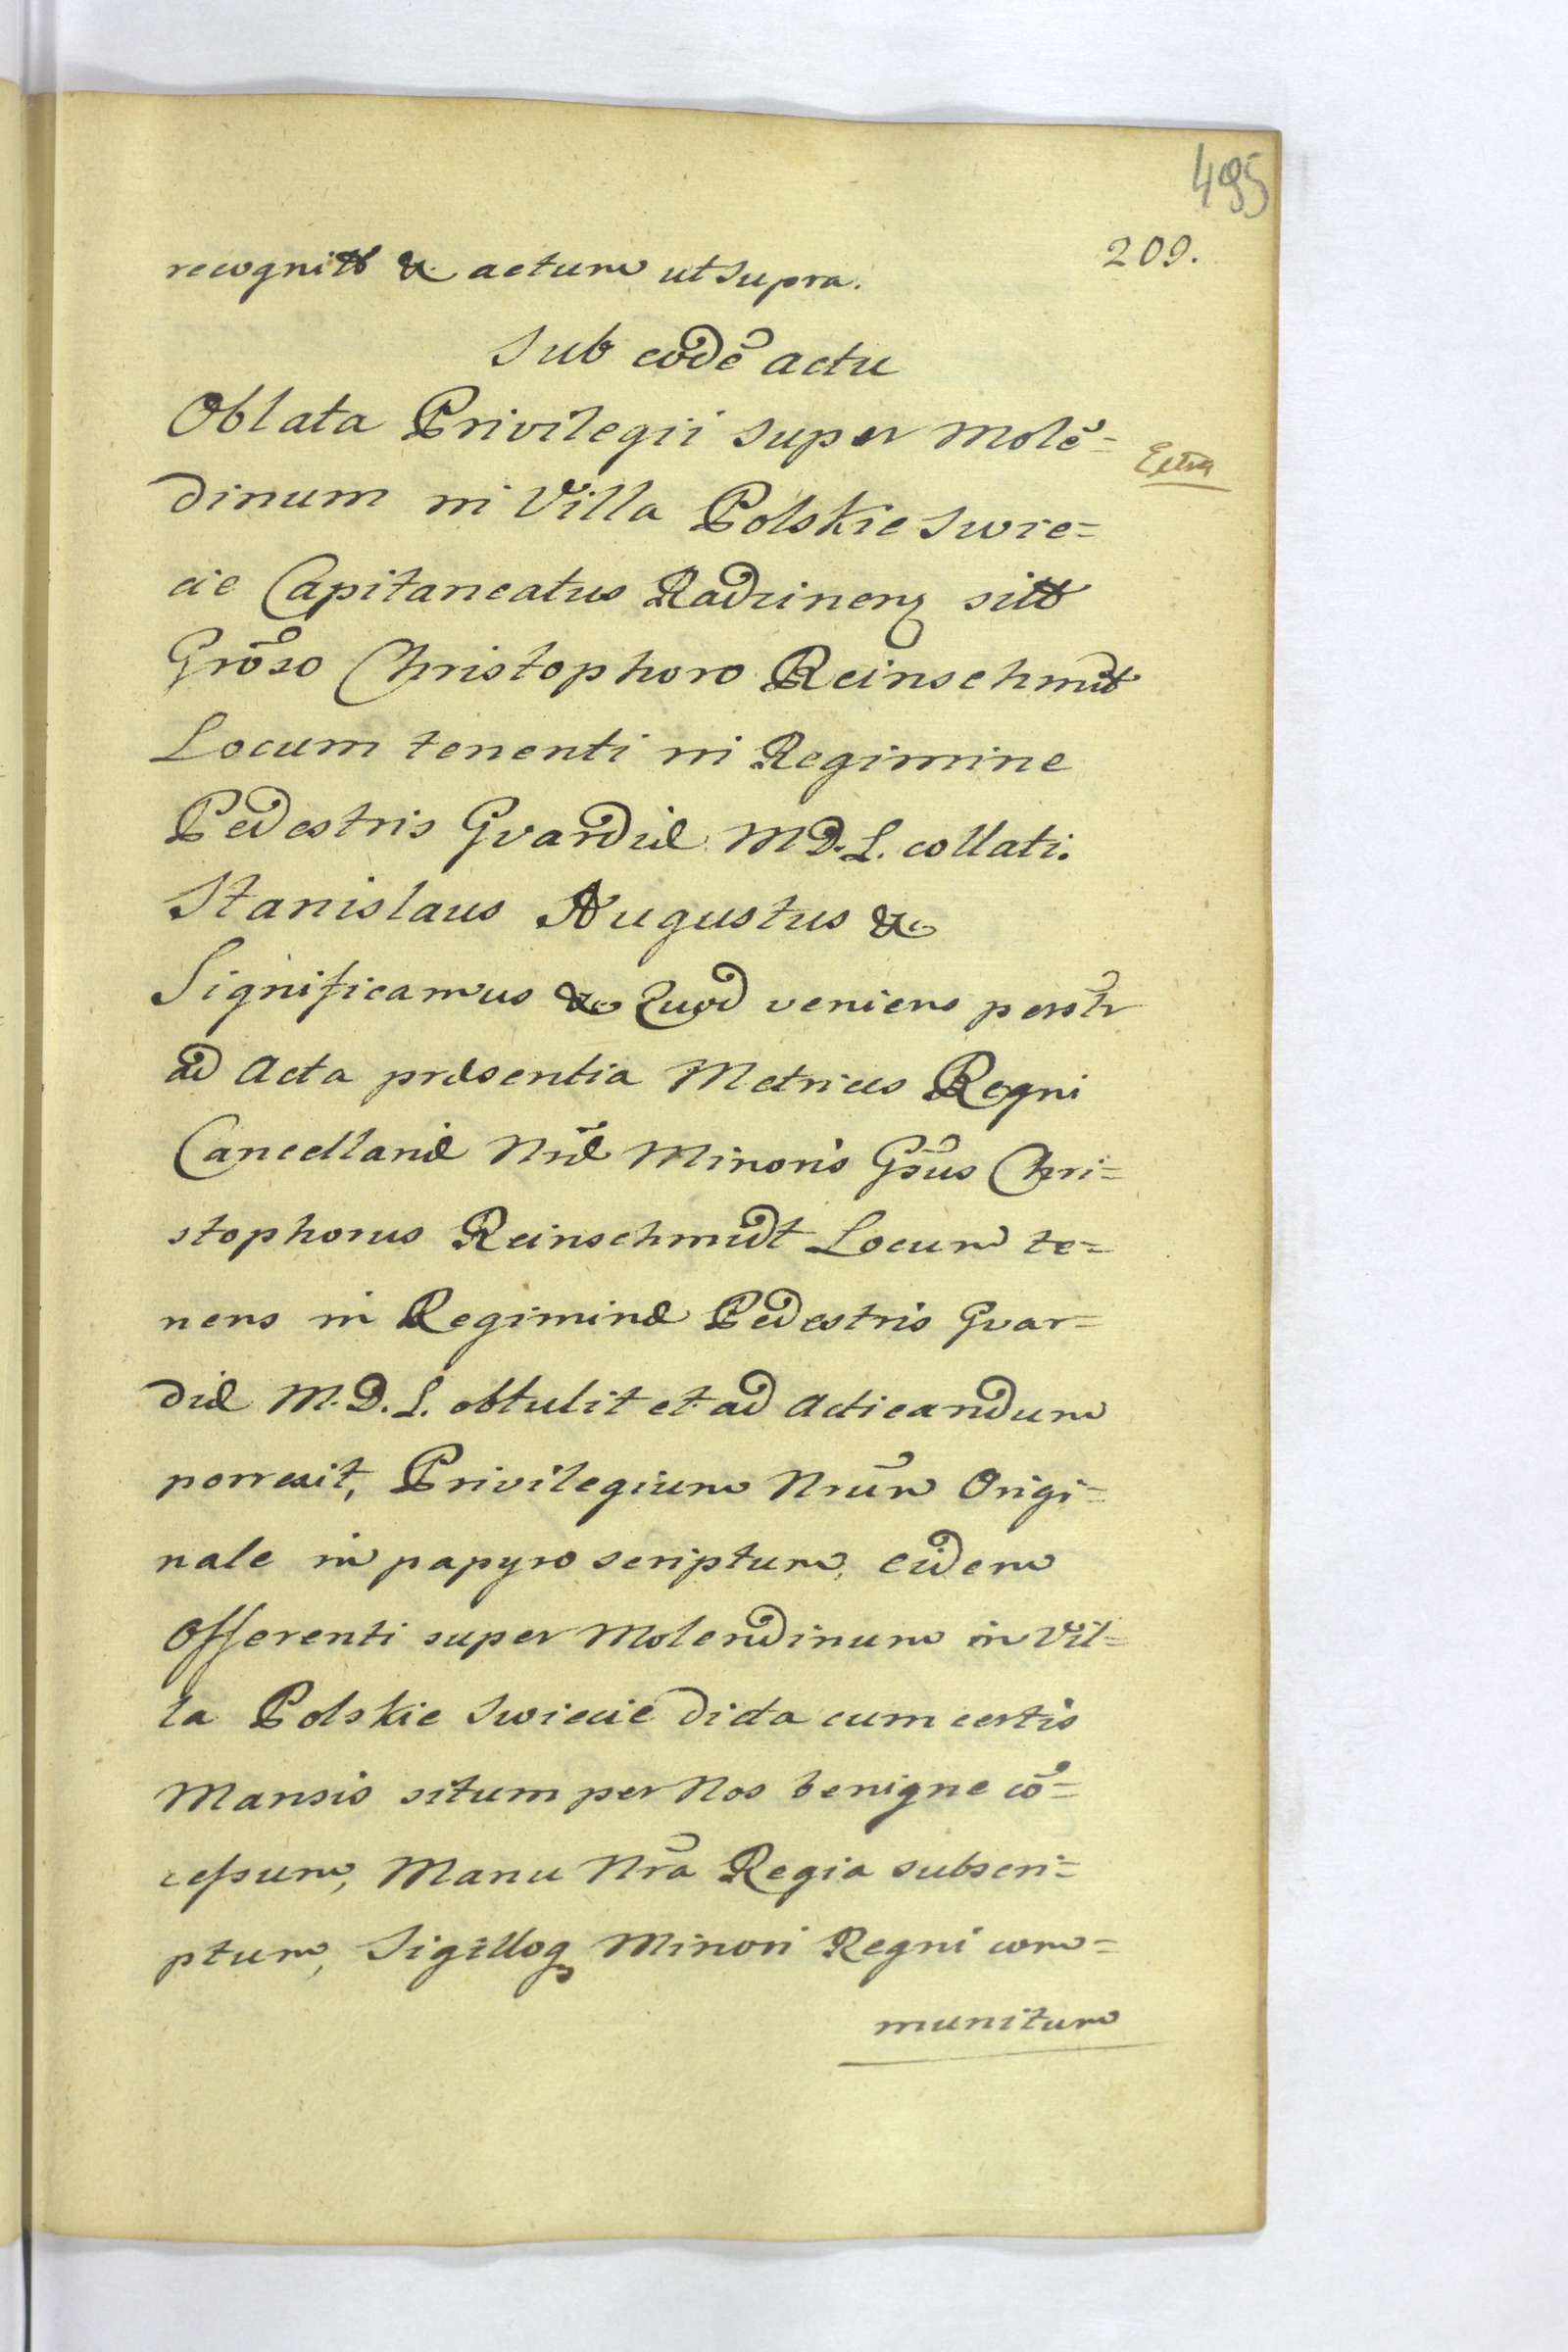 495
209.
recognitt & actum ut supra.
Sub eodē actu
Oblata Privilegii super Molē=
dinum in Villa Polskie Swie=
cie Capitaneatus Radzinen̄ sitt
Grōso Christophoro Reinschmidt
Locum tenenti in Regimine
Pedestris Gvardiæ M D. L. collati.
Extra
Stanislaus Augustus &
Significamus & Quod veniens persr̄
ad Acta præsentia Metrices Regni
Cancellariæ Nrǣ Minoris Gsūs Chri=
stophorus Reinschmidt Locum te=
nens in Regimine Pedestris Gvar=
diæ M. D. L. obtulit et ad Acticandum
porrexit, Privilegium Nrūm Origi=
nale in papyro scriptum, eidem
Offerenti super Molendinum in Vil=
la Polskie Swiecie dicta cum certis
Mansis situm per Nos benigne cō=
cessum, Manu Nrā Regia subscri=
ptum, Sigilloq Minori Regni com=
munitum